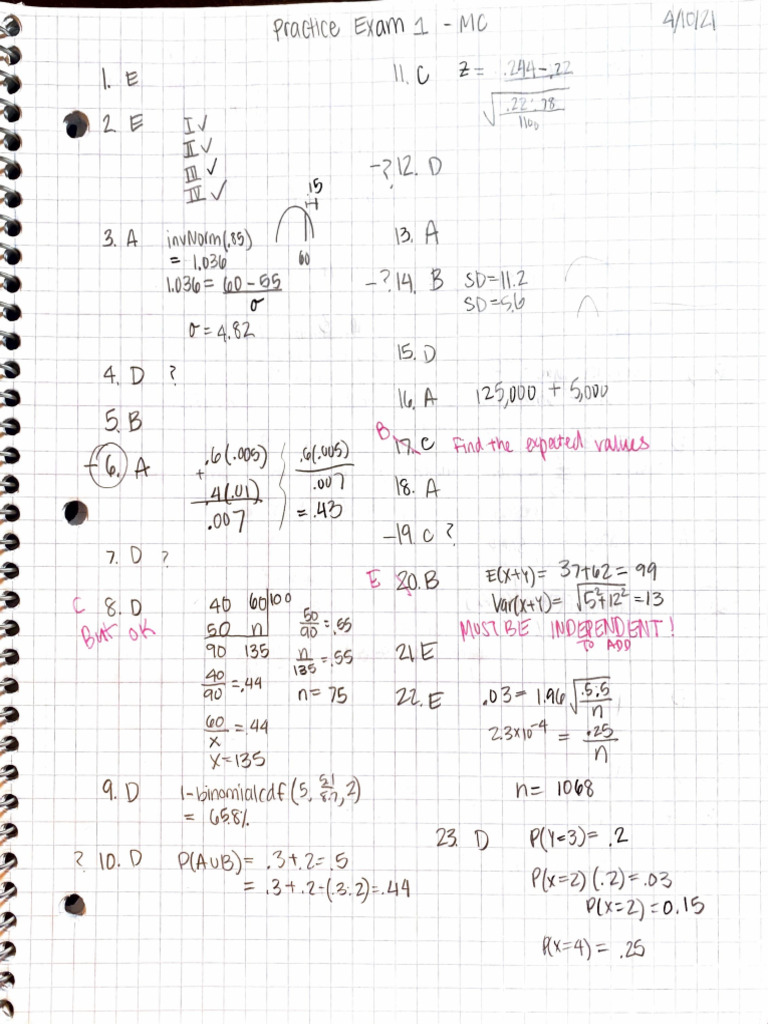 Practice Exam 1 - MC
4/10/21
1. E
2 E
I ✓
II ✓
III ✓
IV ✓
3. A invNorm(.85)
= 1.036
1.036 = 60 - 55
σ
σ = 4.82
.15
60
4. D ?
5. B
- 6. A
.6(.005)
+ .4(.01)
.007
.6(.005)
.007
= .43
7. D ?
C 8. D
But ok
40 60 100
50 n
90 135
50/90 = .55
n/135 = .55
n = 75
40/90 = .44
60/x = .44
x = 135
9. D 1-binomialcdf(5, 51/87, 2)
= 65.8%
? 10. D P(A∪B) = .3+.2 = .5
= .3+.2-(.3·.2) = .44
11. C z = .244-.22
√ .22·.78
1100
-? 12. D
13. A
-? 14. B SD=11.2
SD=5.6
15. D
16. A 125,000 + 5,000
B 17. C Find the expected values
18. A
- 19. C ?
E 20. B E(X+Y) = 37+62 = 99
Var(X+Y) = √5²+12² = 13
MUST BE INDEPENDENT!
TO ADD
21 E
22. E .03 = 1.96 √ .5.5
n
2.3×10⁻⁴ = .25
n
n = 1068
23. D P(Y=3) = .2
P(X=2)(.2) = .03
P(X=2) = 0.15
P(X=4) = .25